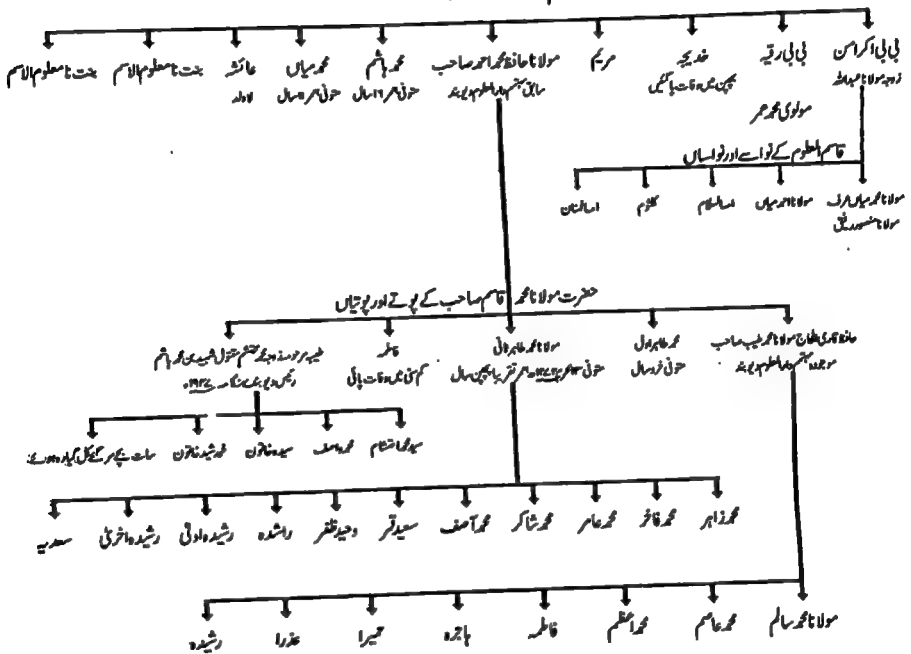 بی بی اکرامن
زوجہ مولانا عبداللہ
بی بی رقیہ
خدیجہ
بچپن میں وفات پاگئیں
مریم
مولانا حافظ محمد احمد صاحب
سابق مہتمم دارالعلوم دیوبند
محمد ہاشم
متوفی بعمر ۱۶ سال
محمد میاں
متوفی بعمر سال
عائشہ
لاولد
بنت نامعلوم الاسم
بنت نامعلوم الاسم
مولوی محمد عمر
قاسم العلوم کے نواسے اور نواسیاں
مولانا محمد میاں عرف
مولانا منصور
مولانا احمد میاں
امۃ السلام
کلثوم
امۃ المنان
حضرت مولانا محمد قاسم صاحب کے پوتے اور پوتیاں
حافظ قاری الحاج مولانا محمد طیب صاحب
موجودہ مہتمم دارالعلوم دیوبند
محمد طاہر اول
متوفی خرد سال
مولانا محمد طاہر ثانی
متوفی عمر تقریبا پچپن سال
فاطمہ
کم سنی میں وفات پائی
طیبہ مرحومہ زوجہ محمد مقتول شہید بن محمد ہاشم
رئیس دیوبند
سید محمد احتشام
محمد واصف
سیدہ خاتون
خورشید خاتون
سات بچے مر گئے کل گیارہ ہوئے
محمد زاہر
محمد فاخر
محمد عامر
محمد شاکر
محمد آصف
سعید قمر
وحید ظفر
راشدہ
رشیدہ اولیٰ
رشیدہ اخریٰ
سعدیہ
مولانا محمد سالم
محمد عاصم
محمد اعظم
فاطمہ
ہاجرہ
حمیرا
عذرا
رشیدہ